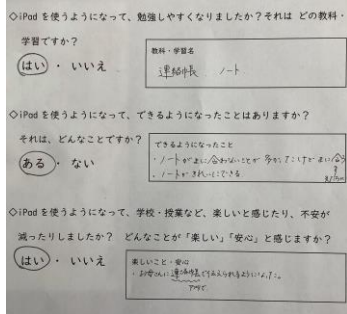 ◇iPad を使うようになって、勉強しやすくなりましたか？それは どの教科・
学習ですか？
はい ・ いいえ
教科・学習名
連絡帳 ノート
◇iPad を使うようになって、できるようになったことはありますか？
それは、どんなことですか？
ある ・ ない
できるようになったこと
・ノートがまに合わないことが多かったけどまに合う
・ノートがきれいにできる
◇iPad を使うようになって、学校・授業など、楽しいと感じたり、不安が
減ったりしましたか？ どんなことが「楽しい」「安心」と感じますか？
はい ・ いいえ
楽しいこと・安心
・お母さんに連絡帳で伝えられるようになった。